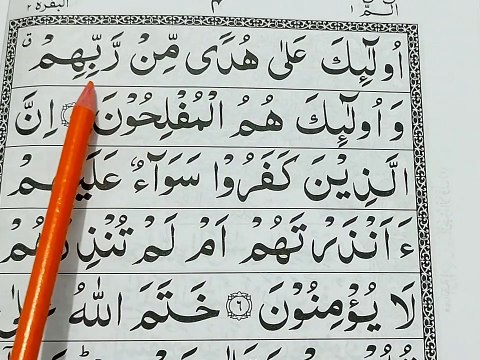 البقرة ٢
الٓمّٓ ١
اُولٰٓئِكَ عَلٰى هُدًى مِّنْ رَّبِّهِمْ ق
وَ اُولٰٓئِكَ هُمُ الْمُفْلِحُوْنَ اِنَّ
الَّذِيْنَ كَفَرُوْا سَوَآءٌ عَلَيْهِمْ
ءَاَنْذَرْتَهُمْ اَمْ لَمْ تُنْذِرْهُمْ
لَا يُؤْمِنُوْنَ ۝٦ خَتَمَ اللّٰهُ عَلٰى